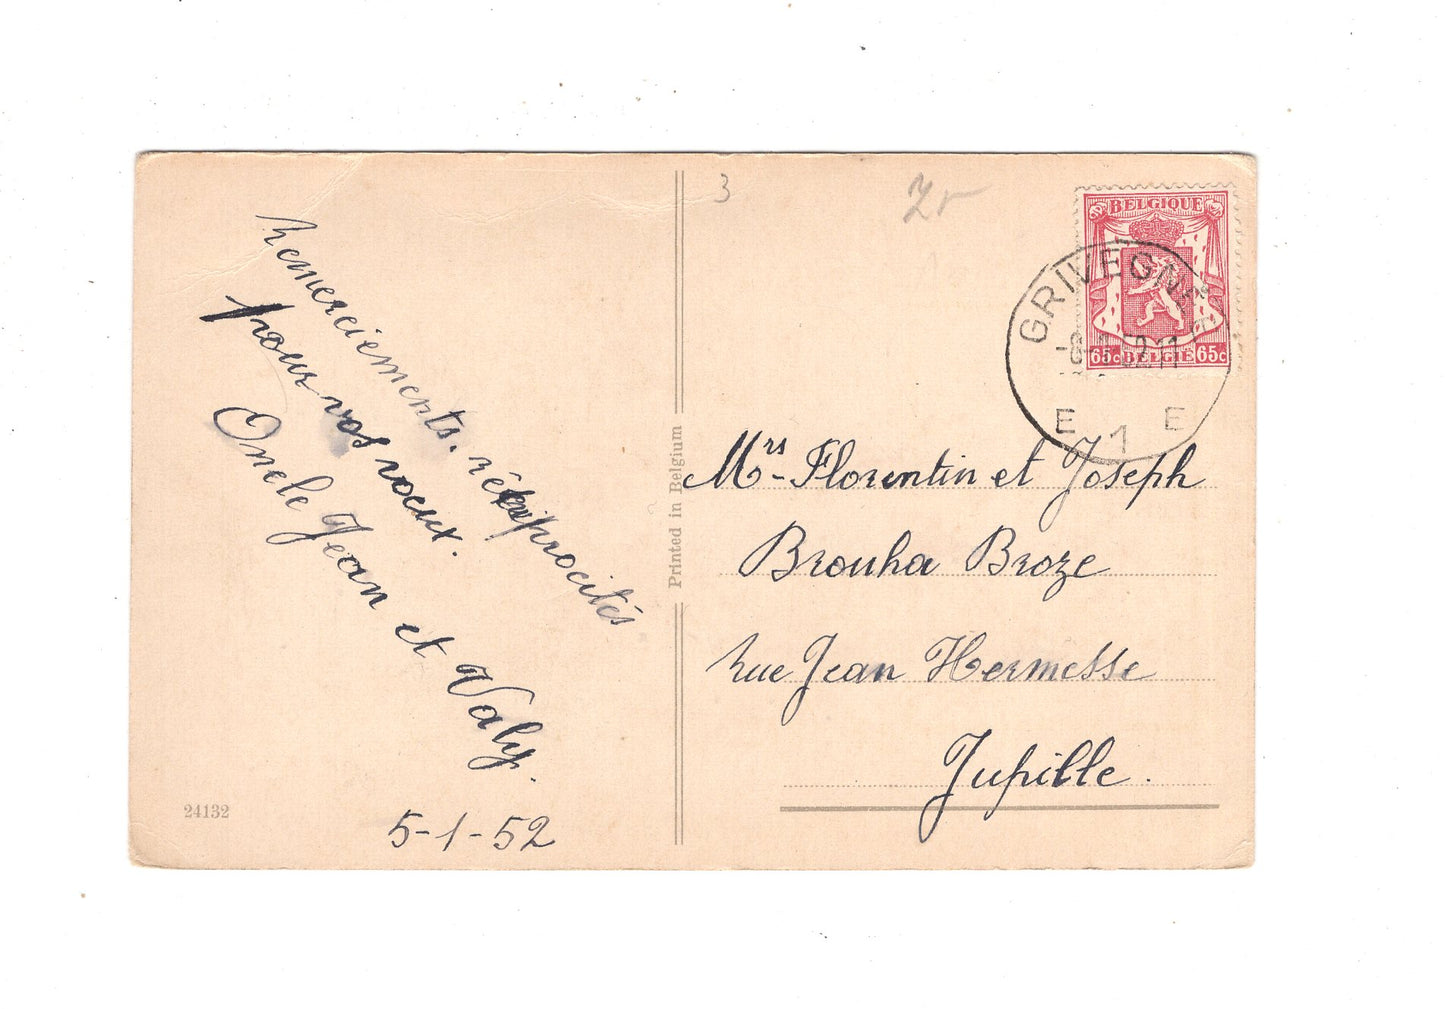 Remerciements, réciprocités
pour vos voeux.
Oncle Jean et Valy.
5-1-52
24132
Printed in Belgium
3
BELGIQUE
65c BELGIË 65c
GRIVEGNÉE
-8-1 52.11
E 1 E
Mrs Florentin et Joseph
Brouha Broze
rue Jean Hermesse
Jupille.